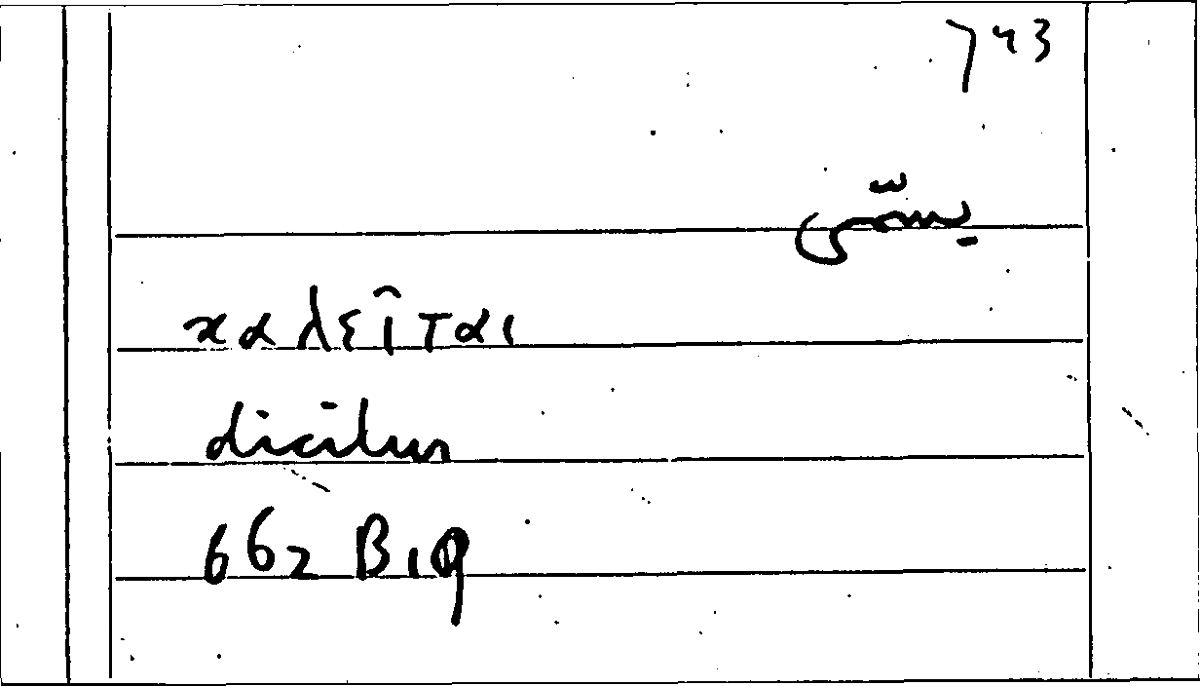 743
يسمى
καλεῖται
dicitur
662 B 19